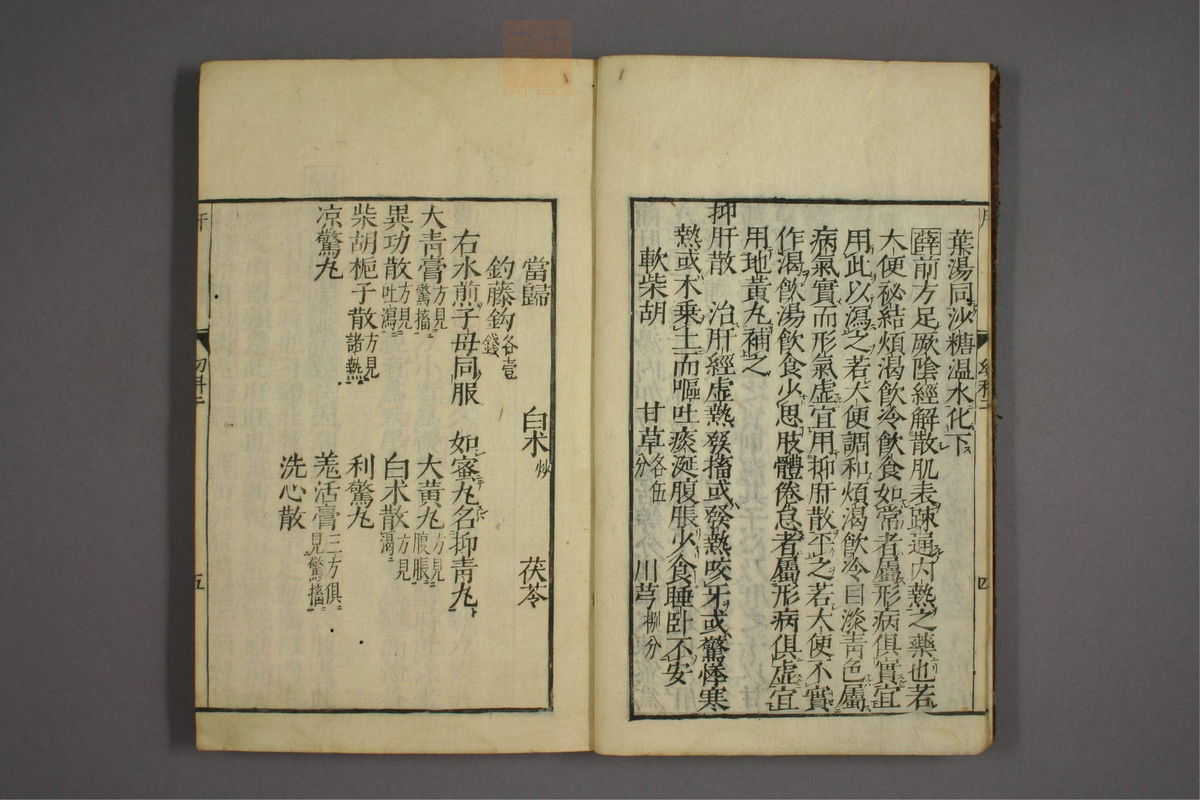 葉湯同沙糖溫水化下
薛前方足厥陰經解散肌表疎通内熱之藥也若
大便祕結煩渴飲冷飲食如常者屬形病俱實宜
用此以瀉之若大便調和煩渴飲冷目淡青色屬
病氣實而形氣虛宜用抑肝散平之若大便不實
作渴飲湯飲食少思肢體倦怠者屬形病俱虛宜
用地黃丸補之
抑肝散 治肝經虛熱發搐或發熱咬牙或驚悸寒
熱或木乘土而嘔吐痰涎腹脹少食睡卧不安
軟柴胡 甘草各伍分 川芎捌分
四
當歸 白朮炒 茯苓
釣藤鈎各壹錢
右水煎子母同服 如蜜丸名抑青丸
大青膏方見驚搐 大黃丸方見腹脹
異功散方見吐瀉 白朮散方見渴
柴胡梔子散方見諸熱 利驚丸
凉驚丸 羗活膏三方俱見驚搐
洗心散
肝
幼科二
五